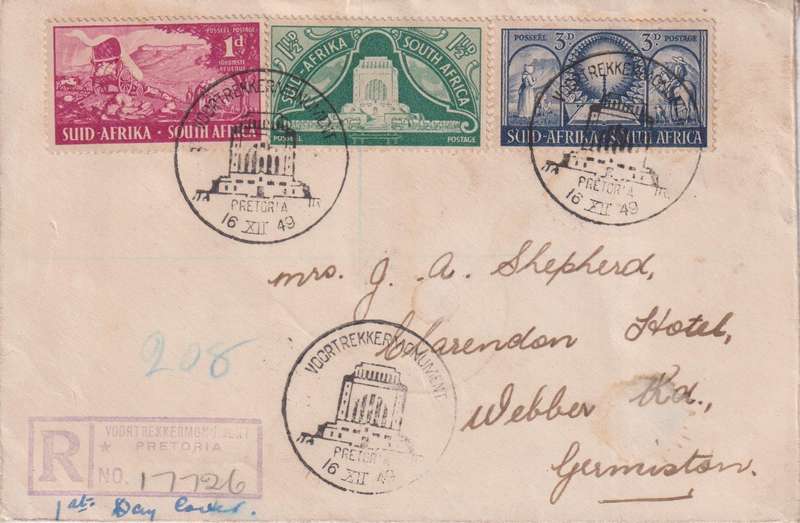 POSSEËL POSTAGE
1D
INKOMSTE
REVENUE
SUID-AFRIKA · SOUTH AFRICA
1½D
1½D
SUID-AFRIKA SOUTH AFRICA
POSSEËL POSTAGE
POSSEËL 3D 3D POSTAGE
SUID-AFRIKA SOUTH AFRICA
VOORTREKKERMONUMENT
PRETORIA
16 XII 49
VOORTREKKERMONUMENT
PRETORIA
16 XII 49
Mrs. J. A. Shepherd,
Clarendon Hotel,
Webber Rd.,
Germiston.
208
VOORTREKKERMONUMENT
PRETORIA
16 XII 49
R VOORTREKKERMONUMENT
* PRETORIA
NO. 17726
1st Day Cover.